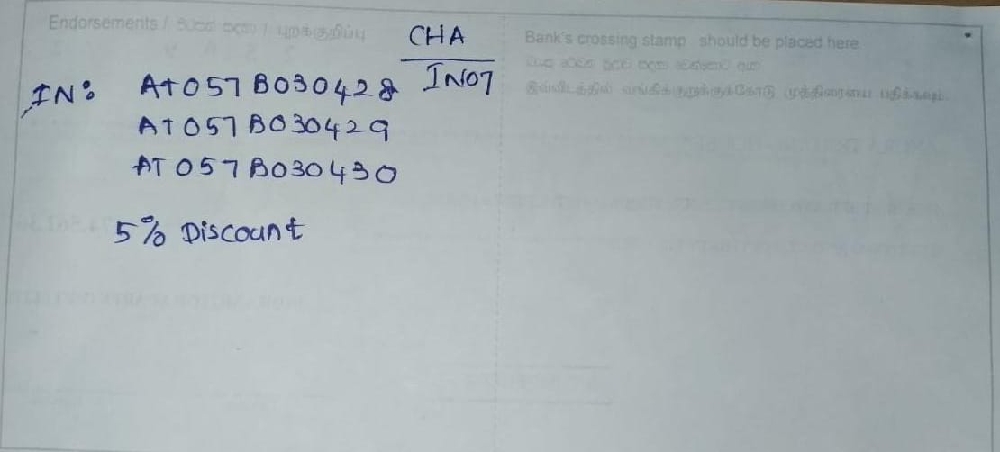 Endorsements / පිටසන් කිරීම / புறக்குறிப்பு
CHA
IN07
Bank's crossing stamp should be placed here
IN: AT057B030428
AT057B030429
AT057B030430
5% Discount